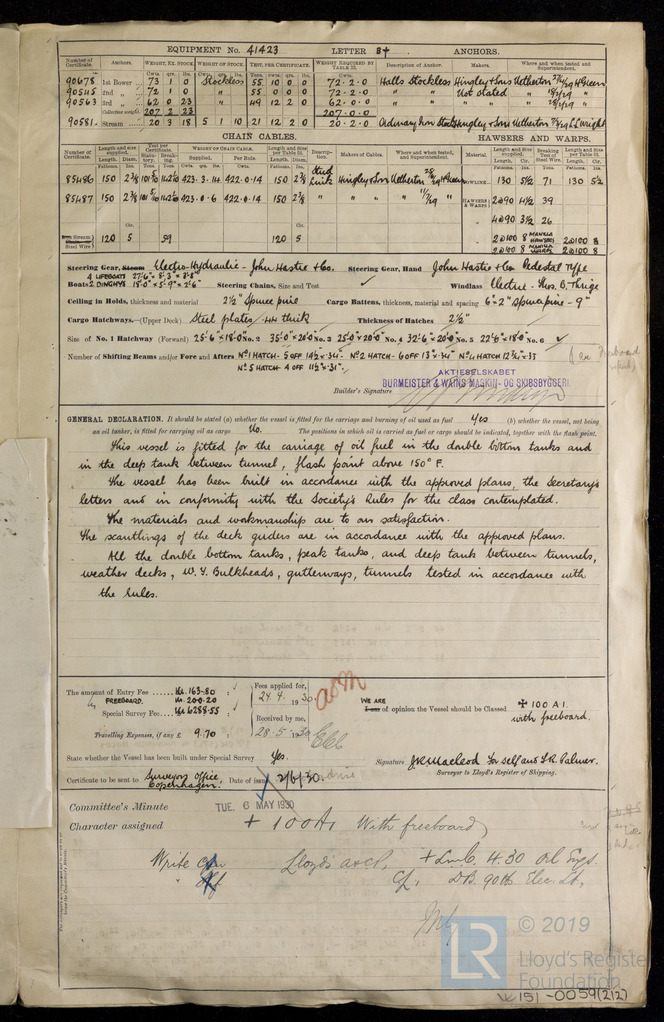 EQUIPMENT No. 41423 LETTER B† ANCHORS.
Number of Certificate. Anchors. WEIGHT, EX. STOCK. WEIGHT OF STOCK. TEST, PER CERTIFICATE. WEIGHT REQUIRED BY TABLE 53. Description of Anchor. Makers. Where and when tested and Superintendent.
90678 1st Bower 73 1 0 Stockless 55 10 0 0 72-2-0 Halls Stockless Hingley & Sons Netherton
90545 2nd " 72 1 0 " 55 0 0 0 72-2-0 " " Not stated
90563 3rd " 62 0 23 " 49 12 2 0 62-0-0 " "
Collective weight 207 2 23 207-0-0
90581 Stream 20 3 18 5 1 10 21 12 2 0 20-2-0 Ordinary Iron Stock Hingley & Sons Netherton L. Wright
CHAIN CABLES. HAWSERS AND WARPS.
Number of Certificate. Length and size supplied. Test per Certificate. WEIGHT OF CHAIN CABLE. Length and size per Table 53. Description. Makers of Cables. Where and when tested, and Superintendent. Material. Length and size supplied. Breaking Test of Steel Wire. Length and size per Table 53.
85486 150 2⅜ 423-3-14 422-0-14 150 2⅜ Stud Link Hingley & Sons Netherton TOWLINE 130 5½ 71 130 5½
85487 150 2⅜ 423-0-6 422-0-14 150 2⅜ " " " HAWSERS & WARPS 2@90 4½ 39
" 4@90 3½ 26
Steel Wire 120 5 59 120 5 " 2@100 8 MANILA HAWSERS 2@100 8
2@100 8 MANILA WARPS 2@100 8
Steering Gear, Steam Electro-Hydraulic - John Hastie & Co. Steering Gear, Hand John Hastie & Co Pedestal type
Boats 4 LIFEBOATS 27'-6" × 8'-3" × 3'-8"
2 DINGHYS 18'-0" × 5'-9" × 2'-6" Steering Chains, Size and Test ✓ Windlass Electric - Thos. B. Thrige
Ceiling in Holds, thickness and material 2½" Spruce pine Cargo Battens, thickness, material and spacing 6" 2" Spruce pine - 9"
Cargo Hatchways.—(Upper Deck) Steel plates .44 thick Thickness of Hatches 2½"
Size of No. 1 Hatchway (Forward) 25'-6" × 18'-0" No. 2 35'-0" × 20'-0" No. 3 25'-0" × 20'-0" No. 4 32'-6" × 20'-0" No. 5 22'-6" × 18'-0" No. 6 ✓
Number of Shifting Beams and/or Fore and Afters No 1 HATCH - 5 OFF 14½" × 34" No 2 HATCH - 6 OFF 13" × 34" No 4 HATCH 12¾" × 33
No 5 HATCH 4 OFF 11½" × 31"
AKTIESELSKABET
BURMEISTER & WAINS MASKIN- OG SKIBSBYGGERI
Builder's Signature
GENERAL DECLARATION. It should be stated (a) whether the vessel is fitted for the carriage and burning of oil used as fuel Yes (b) whether the vessel, not being
an oil tanker, is fitted for carrying oil as cargo No. The positions in which oil is carried as fuel or cargo should be indicated, together with the flash point.
This vessel is fitted for the carriage of oil fuel in the double bottom tanks and
in the deep tank between tunnel, flash point above 150° F.
The vessel has been built in accordance with the approved plans, the Secretary's
letters and in conformity with the Society's Rules for the class contemplated.
The materials and workmanship are to our satisfaction.
The scantlings of the deck girders are in accordance with the approved plans.
All the double bottom tanks, peak tanks, and deep tank between tunnels,
weather decks, W.T. Bulkheads, gutterways, tunnels tested in accordance with
the Rules.
The amount of Entry Fee Kr. 163-80 Fees applied for,
" FREEBOARD. Kr. 200-20 24.4. 1930
Special Survey Fee Kr 6288-55 Received by me,
Travelling Expenses, if any £ 9.70 28.5 1930
WE ARE
I am of opinion the Vessel should be Classed ✠ 100 A1.
with freeboard.
State whether the Vessel has been built under Special Survey Yes. Signature J.R. Macleod for self and F.R. Palmer.
Surveyor to Lloyd's Register of Shipping.
Certificate to be sent to Surveyors Office Copenhagen. Date of issue 2/6/30.
Committee's Minute TUE. 6 MAY 1930
Character assigned + 100A1 With freeboard
Write Lloyd's a & c.p. + Lmb. 4.30 Oil Engs.
CL. D.B. 90 lb Elec. Lt.
LR © 2019
Lloyd's Register
Foundation
W151-0059(2/2)